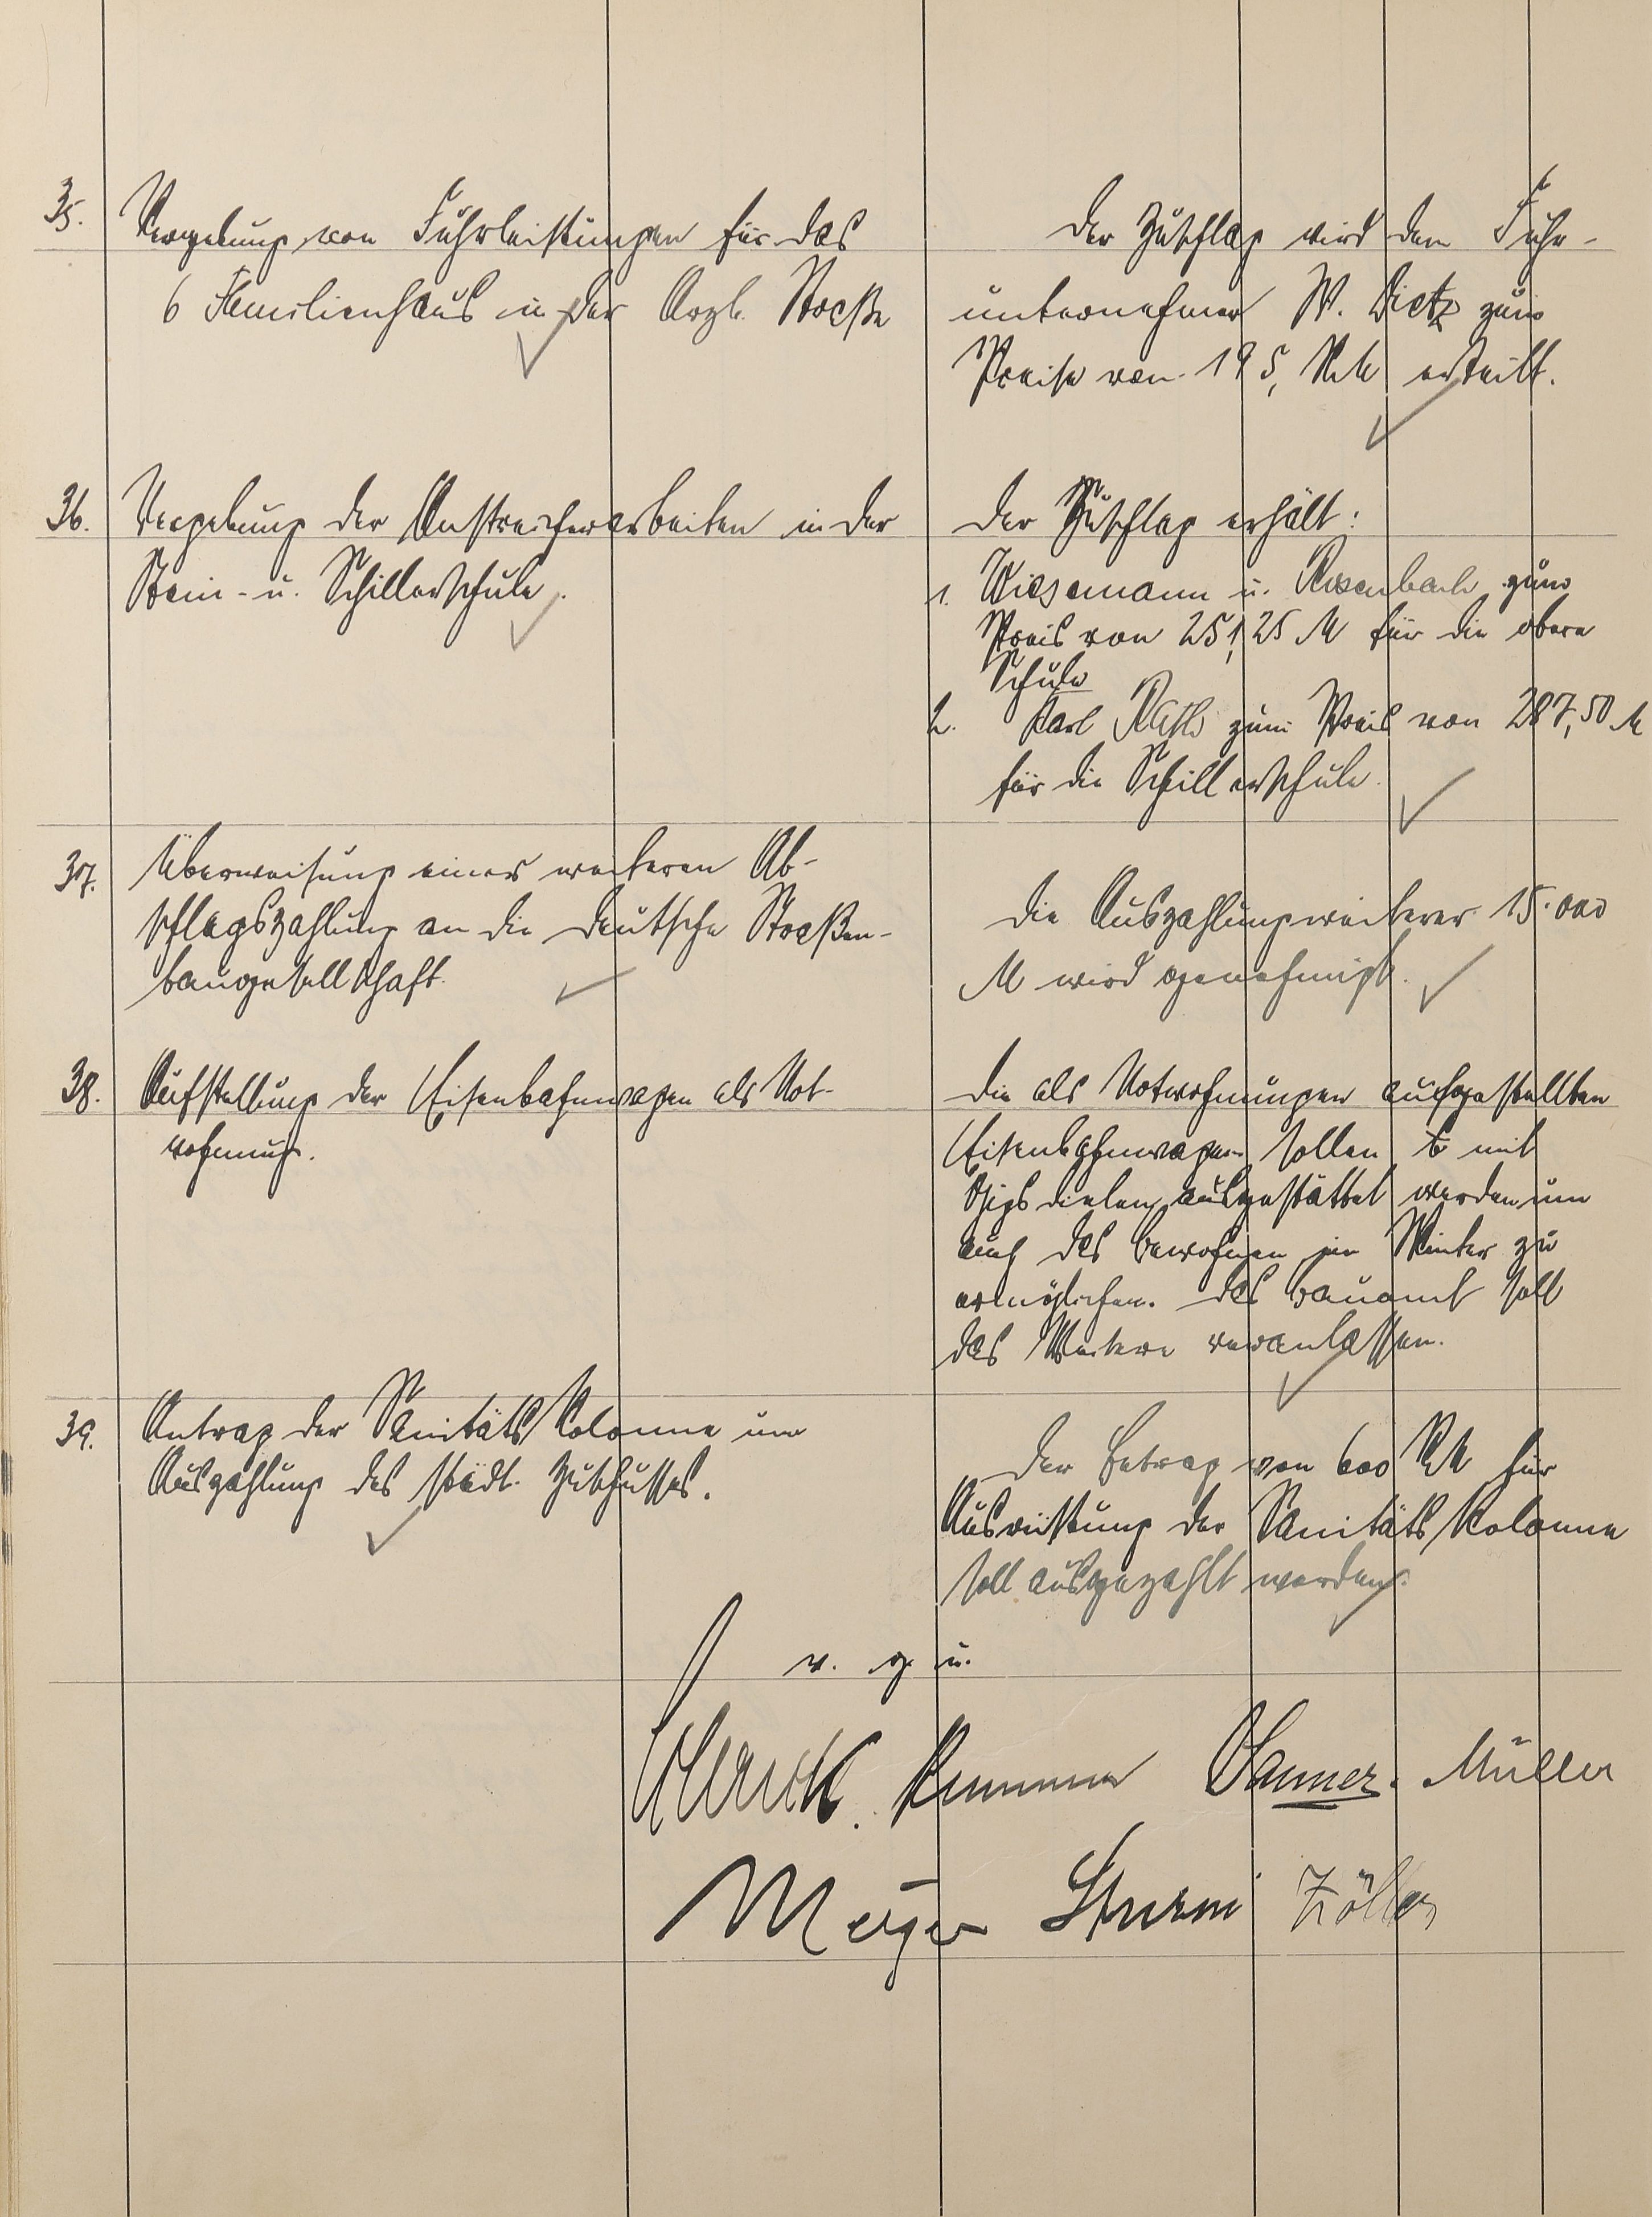 35. Vergebung von Fuhrleistungen für das
6 Familienhaus in der Arzb. Straße
Der Zuschlag wird dem Fuhr-
unternehmer W. Dietz zum
Preise von 195, RM erteilt.
36. Vergebung der Anstreicherarbeiten in der
Stein- u. Schillerschule.
Der Zuschlag erhält:
1. Wiesemann u. Rosenbach zum
Preis von 251,25 M für die obere
Schule
2. Karl Rath zum Preis von 287,50 M
für die Schillerschule.
37. Überweisung einer weiteren Ab-
schlagszahlung an die Deutsche Straßen-
baugesellschaft.
Die Auszahlung weiterer 15.000
M wird genehmigt.
38. Aufstellung der Eisenbahnwagen als Not-
wohnung.
Die als Notwohnungen aufgestellten
Eisenbahnwagen sollen mit
Gipsdielen ausgestattet werden um
auch das bewohnen im Winter zu
ermöglichen. Das Bauamt soll
das Weitere veranlassen.
39. Antrag der Sanitäts Kolonne um
Auszahlung des städt. Zuschusses.
Der Betrag von 600 RM für
Ausrüstung der Sanitäts Kolonne
soll ausgezahlt werden.
v. g. u.
Müller
Meyer Sturm Zöller